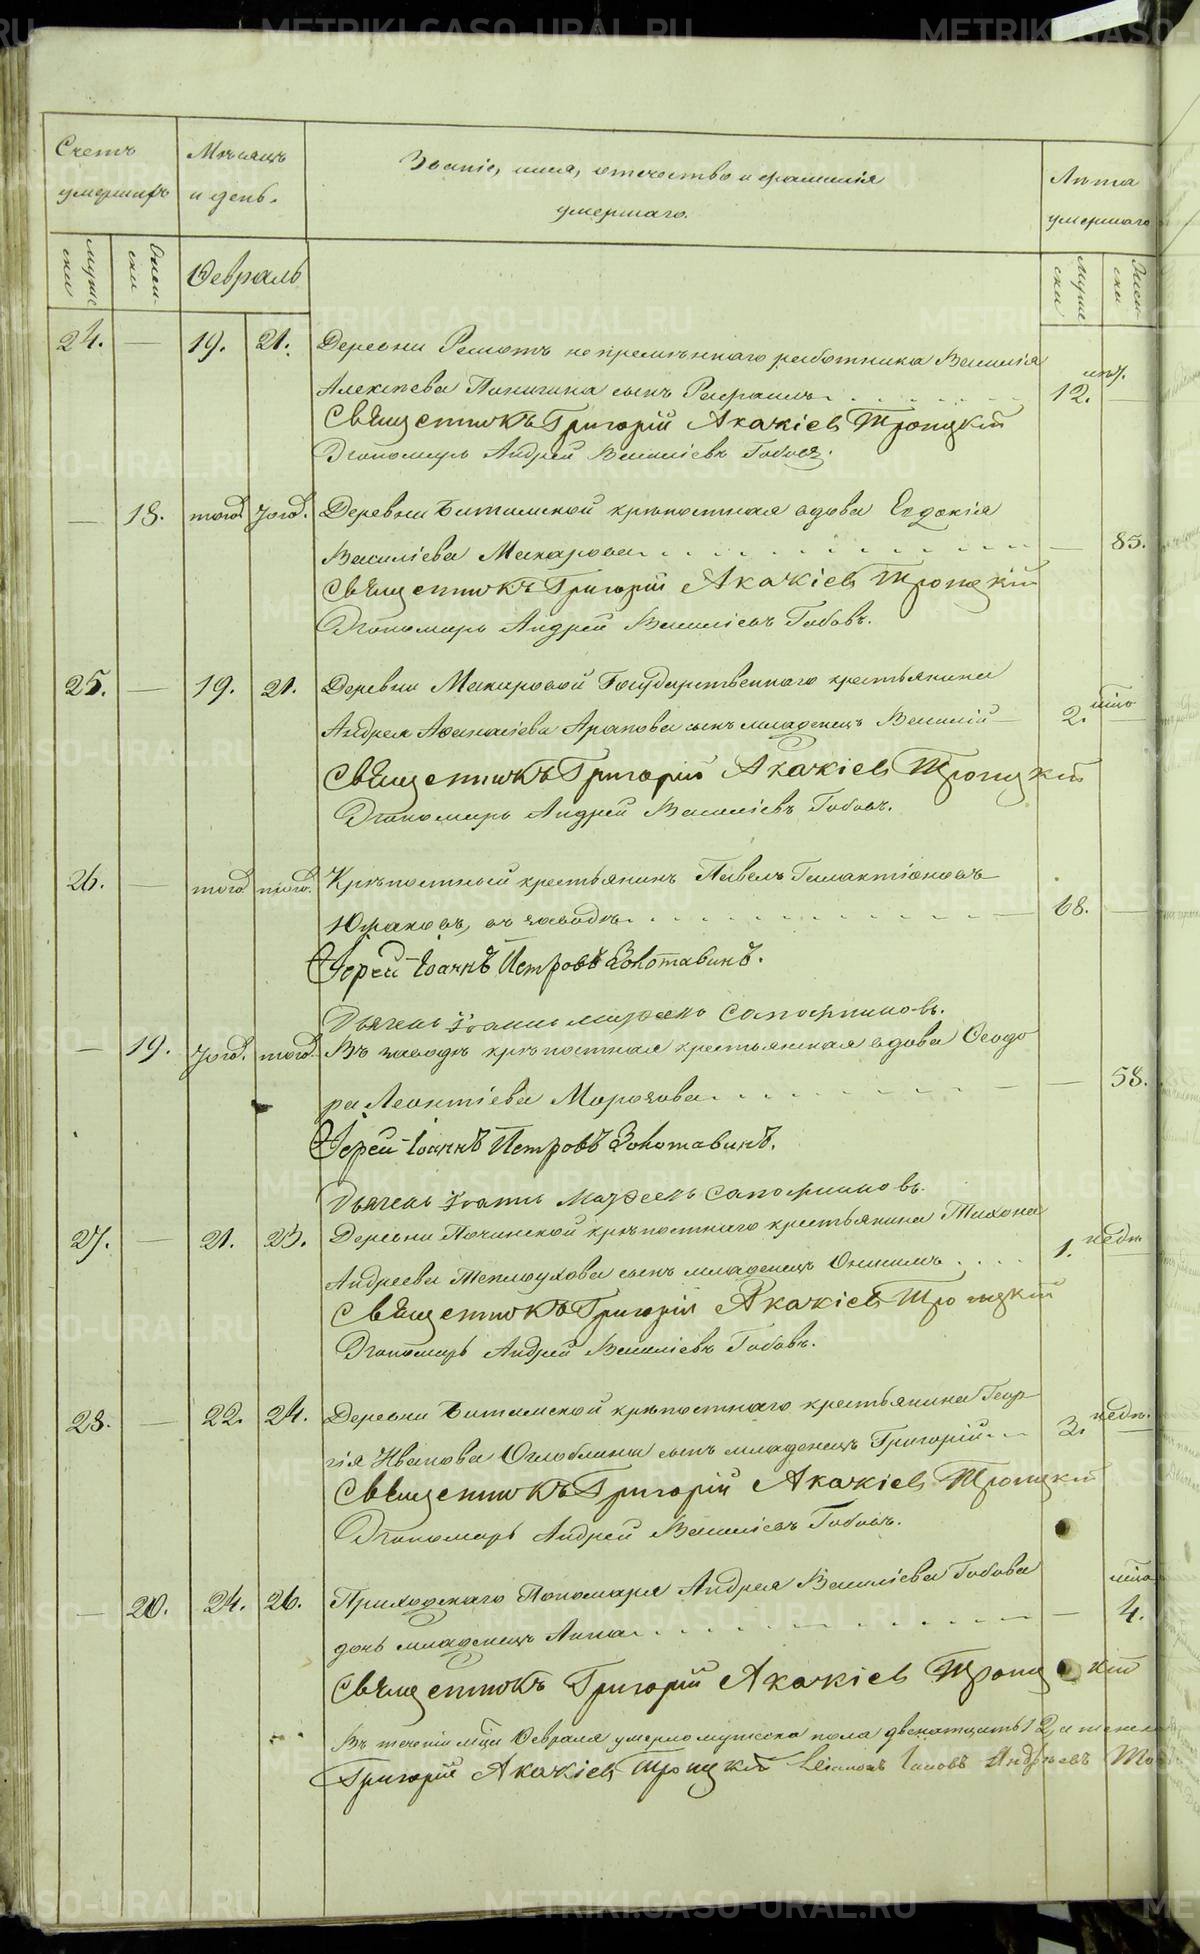 METRIKI.GASO-URAL.RU
Счетъ умершихъ
Мѣсяцъ и день.
Званіе, имя, отечество и фамилія
умершаго.
Лѣта умершаго
Муже ски
Жен ски
Февраль
Муже ски
Жен ски
24. — 19. 21. Деревни Решотъ непремѣннаго работника Василія
Алексѣева Пинигина сынъ 12.
Священникъ Григорій Акакіевъ Троицкій
Пономарь Андрей Василіевъ Гобовъ.
— 18. того того. Деревни Битимской крѣпостная вдова Евдокія
Василіева Макарова — 85.
Священникъ Григорій Акакіевъ Троицкій
Пономарь Андрей Василіевъ Гобовъ.
25. — 19. 21. Деревни Макаровой Государственнаго крестьянина
Андрея Аѳанасіева Арапова сынъ младенецъ Василій — 2.
Священникъ Григорій Акакіевъ Троицкій
Пономарь Андрей Василіевъ Гобовъ.
26. — того того. Крѣпостный крестьянинъ Павелъ Галактіоновъ
Южаковъ, въ заводѣ 68. —
Іерей Іоаннъ Петровъ Золотавинъ.
Дьячекъ Сапожниковъ.
— 19. того. того. Въ заводѣ крѣпостная крестьянская вдова Ѳеодо
ра Леонтіева Морозова — 58.
Іерей Іоаннъ Петровъ Золотавинъ.
Дьячекъ Сапожниковъ.
27. — 21. 23. Деревни Починской крѣпостнаго крестьянина Тихона
Андреева Теплоухова сынъ младенецъ Онисимъ 1. недѣ.
Священникъ Григорій Акакіевъ Троицкій
Пономарь Андрей Василіевъ Гобовъ.
28. — 22. 24. Деревни Битимской крѣпостнаго крестьянина Геор
гія Иванова Оглоблина сынъ младенецъ Григорій 3. недѣ.
Священникъ Григорій Акакіевъ Троицкій
Пономарь Андрей Василіевъ Гобовъ.
— 20. 24. 26. Приходскаго Пономаря Андрея Василіева Гобова
дочь младенецъ Анна — 4.
Священникъ Григорій Акакіевъ Троицкій
Въ теченіи Февраля умерло мужеска пола двенатцать 12, и женска
Григорій Акакіевъ Троицкій